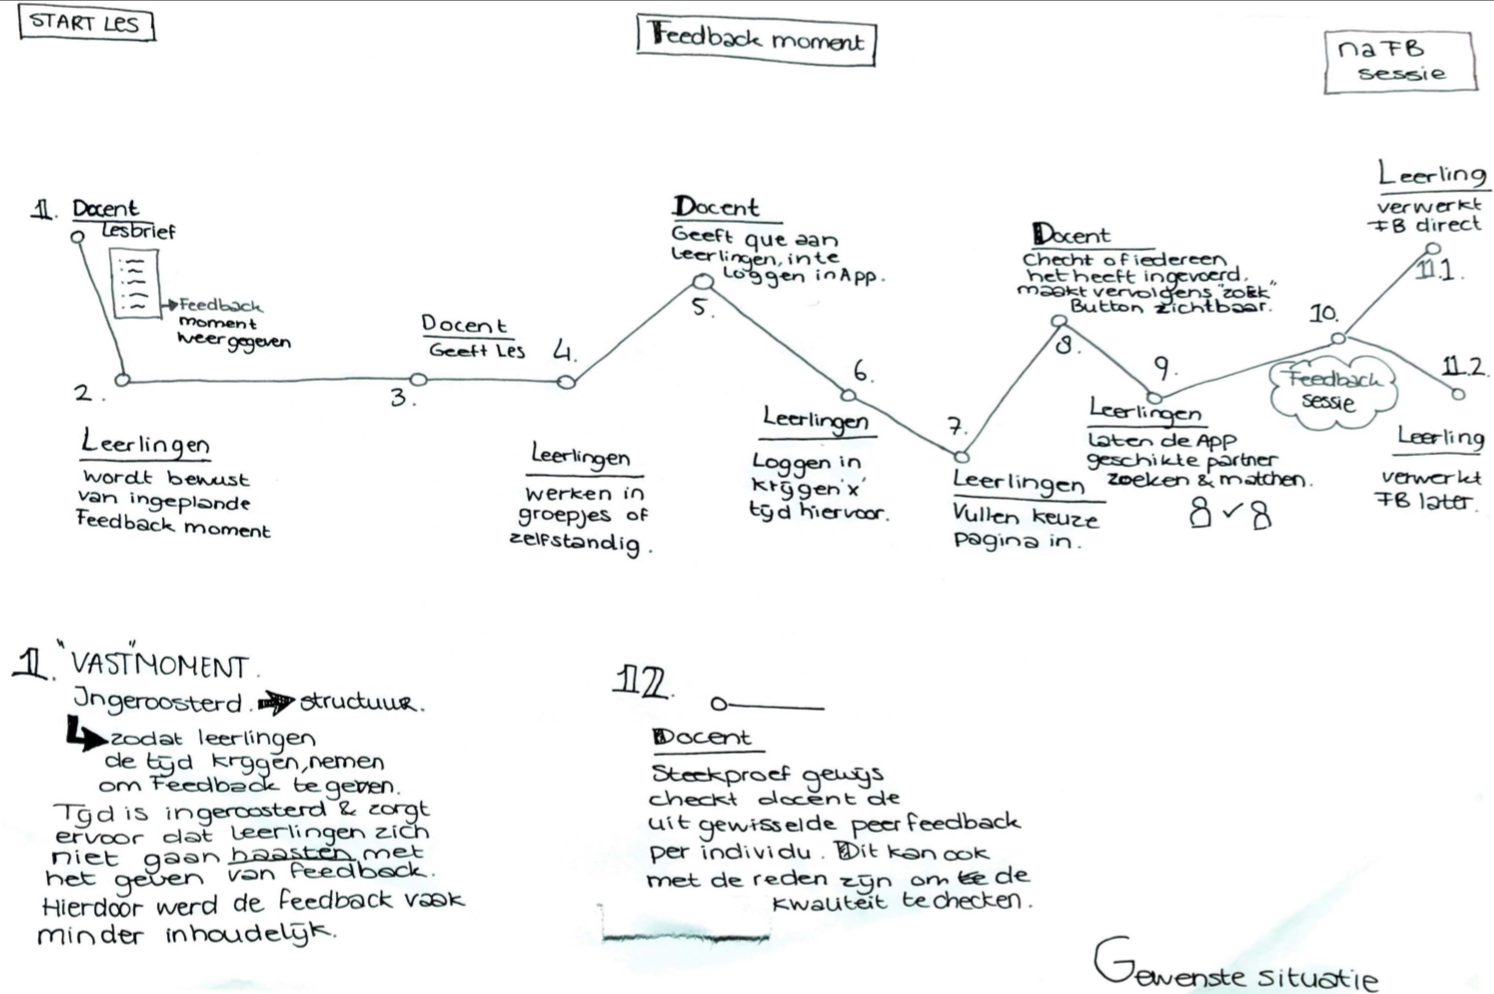 START LES
Feedback moment
na FB
sessie
1. Docent
Lesbrief
Feedback
moment
weergegeven
2.
Leerlingen
wordt bewust
van ingeplande
Feedback moment
3.
Docent
Geeft Les
4.
Leerlingen
werken in
groepjes of
zelfstandig.
Docent
Geeft que aan
leerlingen, in te
Loggen in App.
5.
6.
Leerlingen
Loggen in
krijgen 'x'
tijd hiervoor.
7.
Leerlingen
Vullen keuze
pagina in.
Docent
Checht of iedereen
het heeft ingevoerd.
maakt vervolgens "zoek"
Button zichtbaar.
8.
9.
Leerlingen
Laten de App
geschikte partner
zoeken & matchen.
10.
Feedback
sessie
Leerling
verwerkt
FB direct
11.1.
11.2.
Leerling
verwerkt
FB later.
1. "VAST" MOMENT.
Ingeroosterd. structuur.
zodat leerlingen
de tijd krijgen, nemen
om Feedback te geven.
Tijd is ingeroosterd & zorgt
ervoor dat leerlingen zich
niet gaan haasten met
het geven van feedback.
Hierdoor werd de feedback vaak
minder inhoudelijk.
12.
Docent
Steekproef gewijs
checkt docent de
uit gewisselde peer feedback
per individu. Dit kan ook
met de reden zijn om de
kwaliteit te checken.
Gewenste situatie